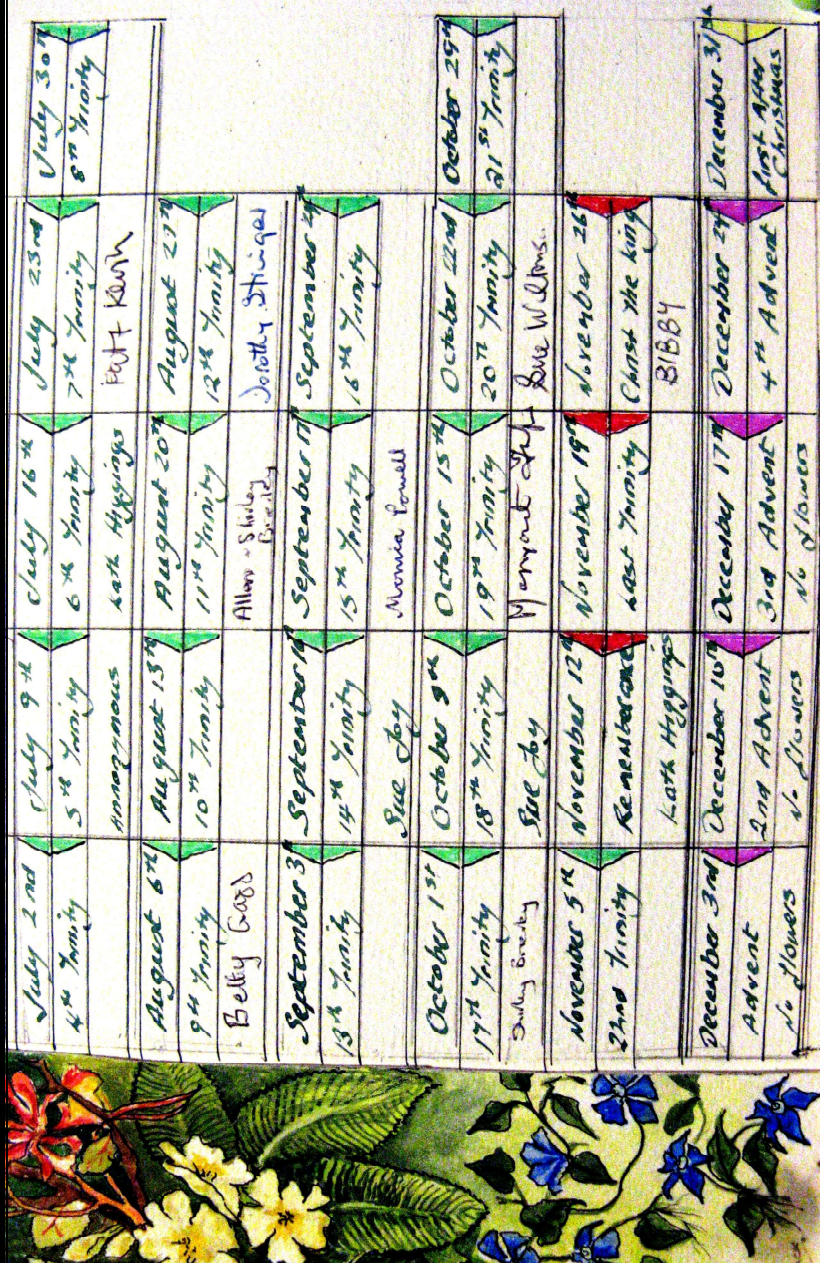 July 2nd July 9th July 16th July 23rd July 30th
4th Trinity 5th Trinity 6th Trinity 7th Trinity 8th Trinity
Anonymous Kath Higgings Patt Kevin
August 6th August 13th August 20th August 27th
9th Trinity 10th Trinity 11th Trinity 12th Trinity
Betty Allan & Shirley Dorothy Stringer
September 3rd September 10th September 17th September 24th
13th Trinity 14th Trinity 15th Trinity 16th Trinity
Sue Joy Monica Powell
October 1st October 8th October 15th October 22nd October 29th
17th Trinity 18th Trinity 19th Trinity 20th Trinity 21st Trinity
Shirley Sue Joy Margaret Sue
November 5th November 12th November 19th November 26th
22nd Trinity Rememberance Last Trinity Christ the King
Kath Higgings BIBBY
December 3rd December 10th December 17th December 24th December 31st
Advent 2nd Advent 3rd Advent 4th Advent First After
Christmas
No flowers No flowers No flowers